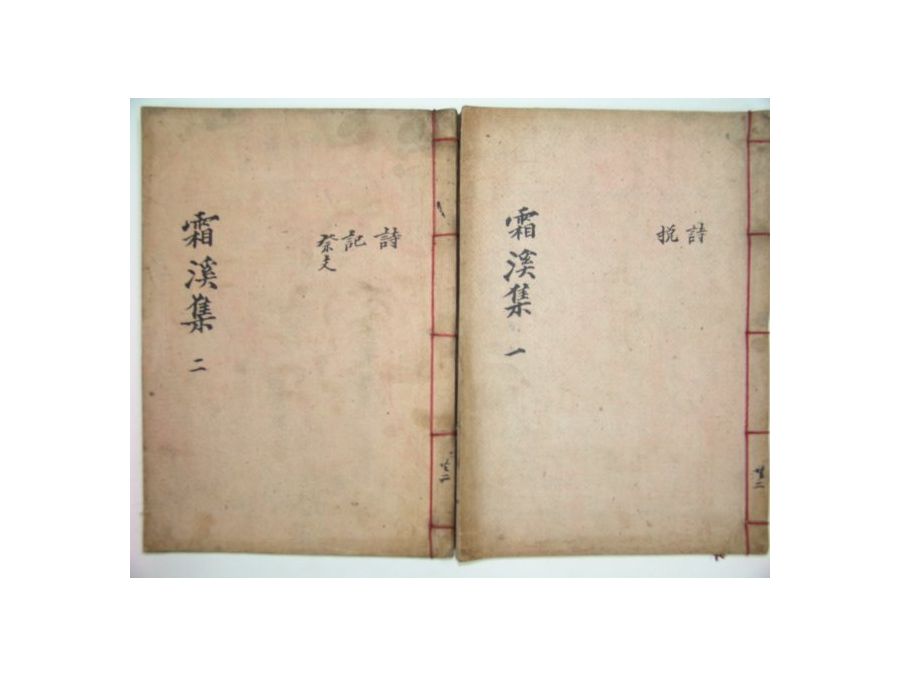 共二
詩
挽
霜溪集 一
共二
詩
記
祭文
霜溪集 二